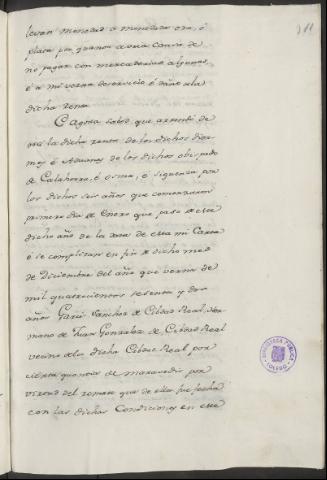 311
levan menudo o menudear oro, ó
plata por quanto a una causa de
no pagar con mercaderias algunas
é a mi verna deservicio é daño a la
dicha renta
E agora sabed que arrendó de
mi la dicha renta de los dichos diez
mos é Aduanas de los dichos obispados
de Calahorra, é Osma, é Siguenza por
los dichos seis años que comenzaron
primero dia de Enero que paso de este
dicho año de la data de esta mi Carta
é se compliran en fin de dicho mes
de Diciembre del año que verna de
mil quatrocientos sesenta y dos
años Garci Sanchez de Cibdad Real, her
mano de Juan Gonzalez de Cibdad Real
vecino de la dicha Cibdad Real por
cierta quantia de maravedis por
virtud del remate que de ella fue fecho
con las dichas Condiciones en esta
BIBLIOTECA PUBLICA
TOLEDO